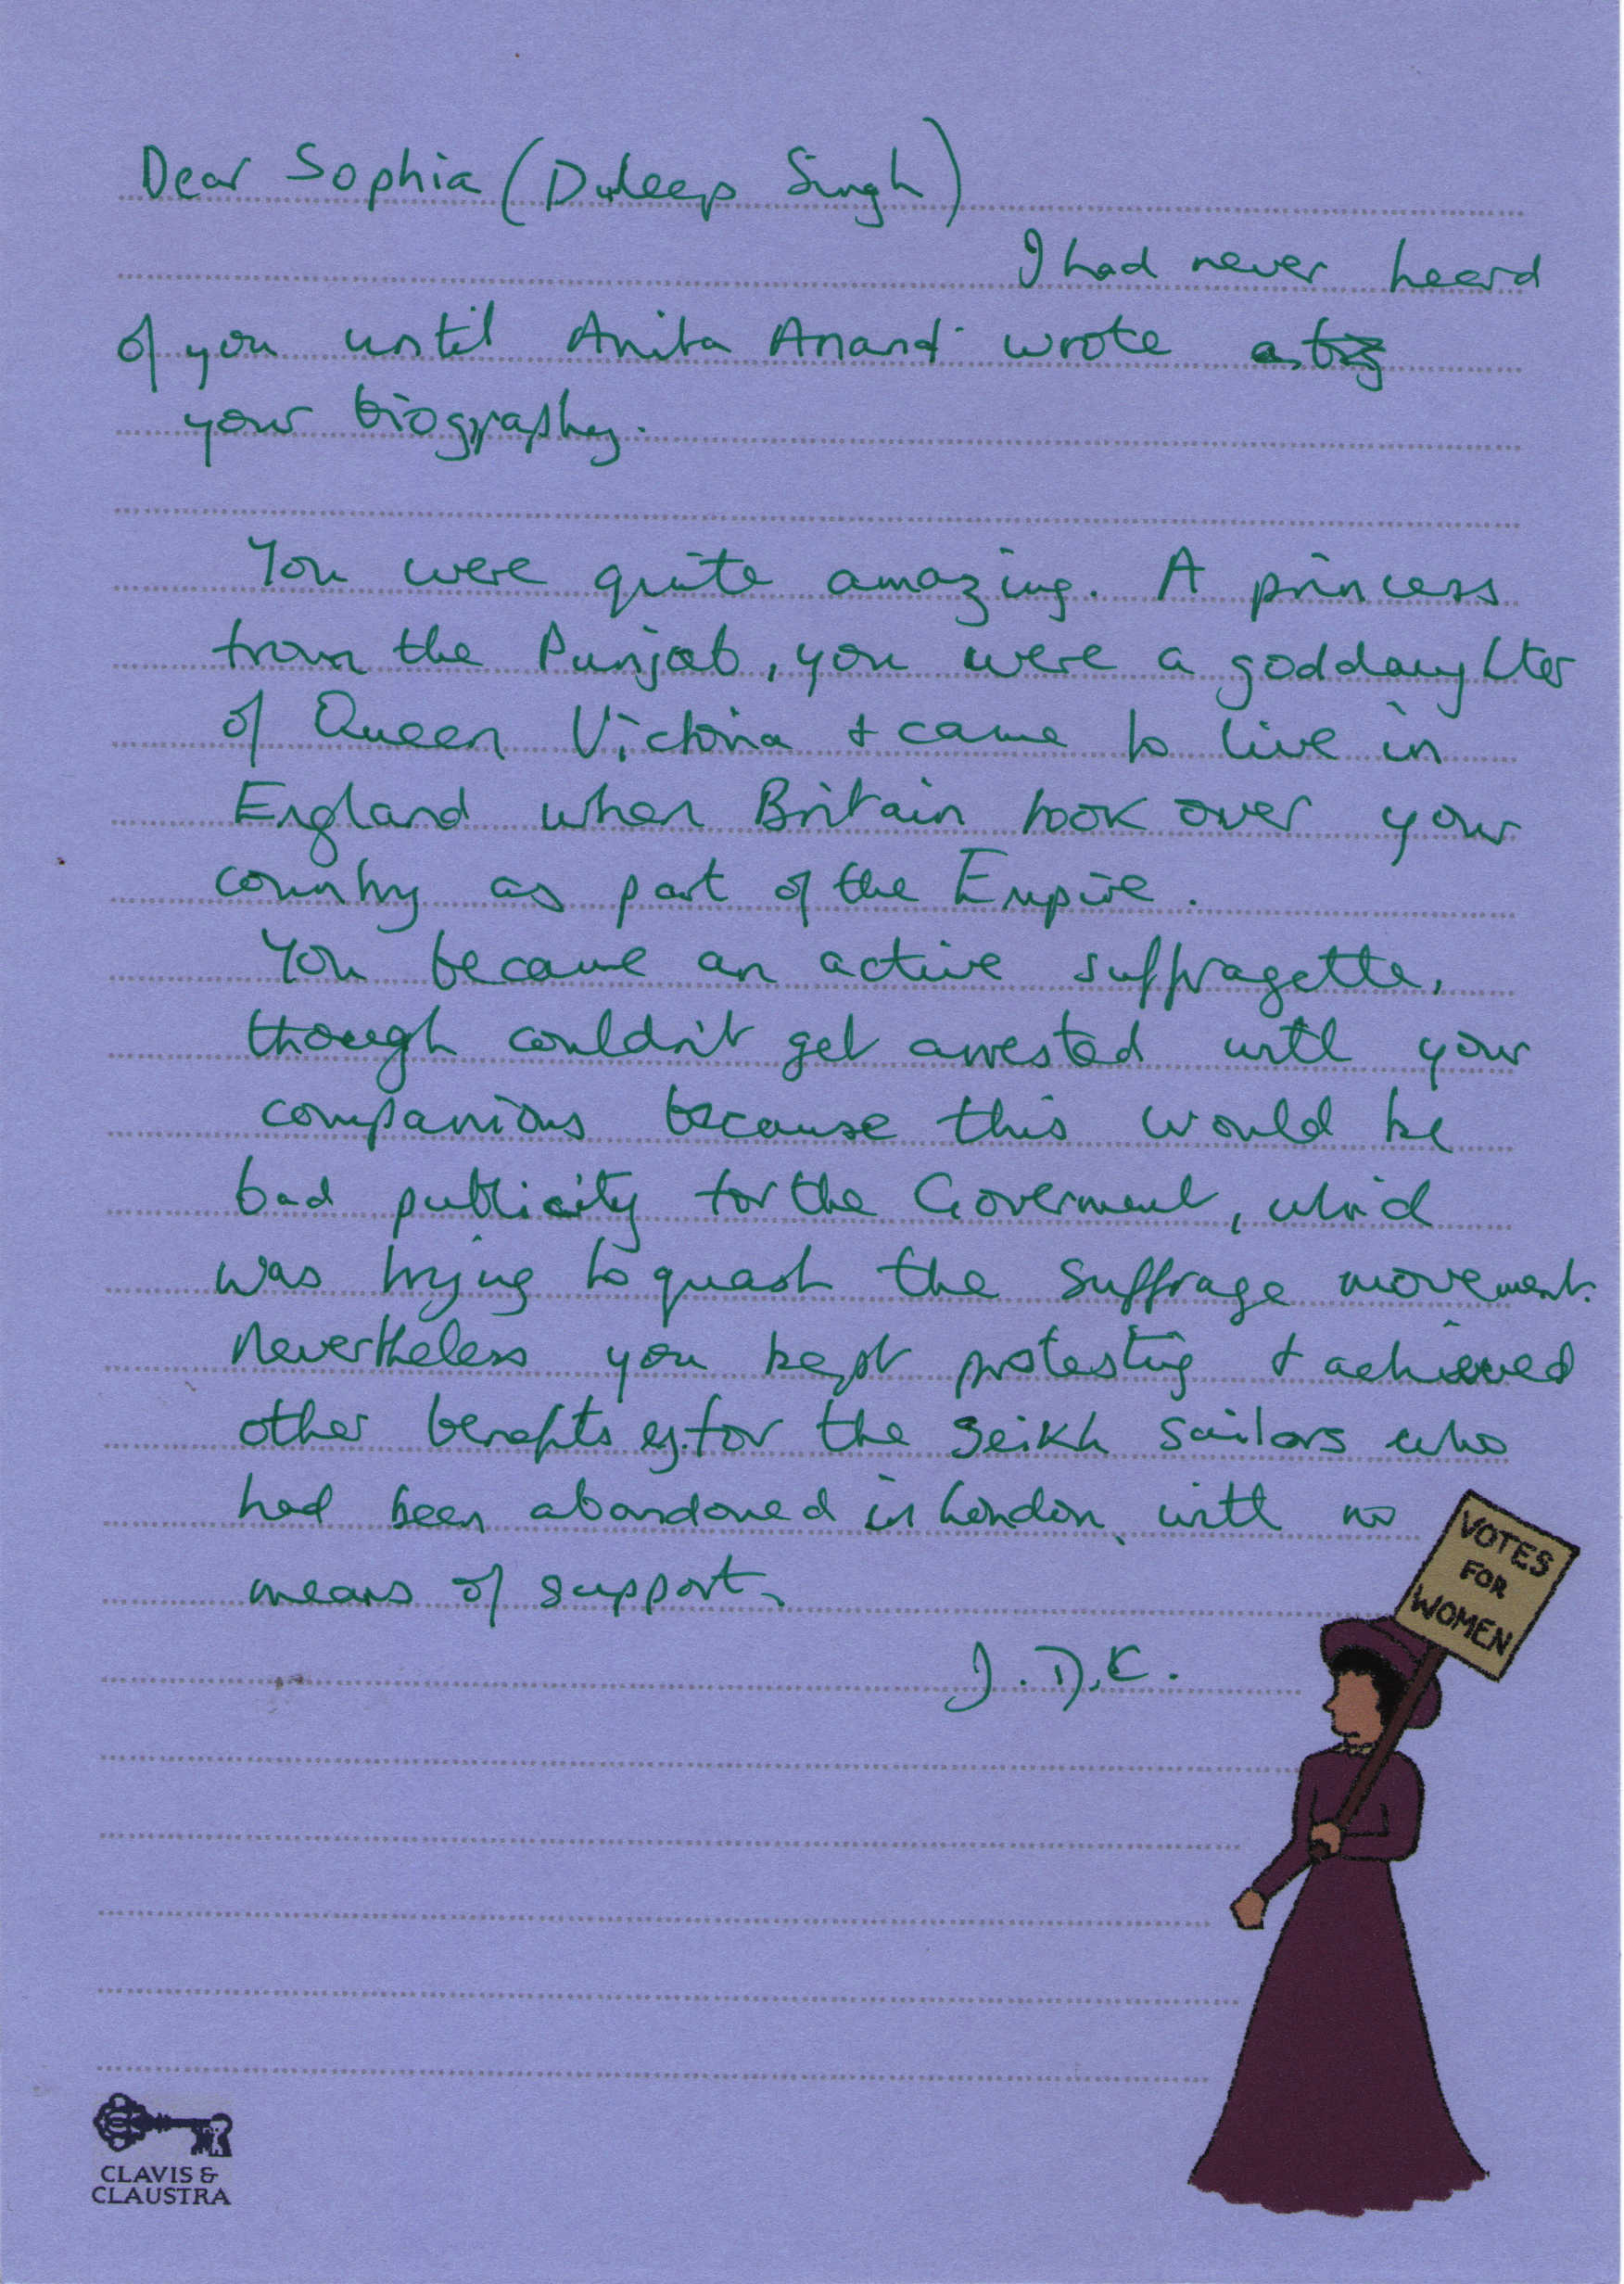 Dear Sophia (Duleep Singh)
I had never heard
of you until Anita Anand wrote
your biography.
You were quite amazing. A princess
from the Punjab, you were a goddaughter
of Queen Victoria + came to live in
England when Britain took over your
country as part of the Empire.
You became an active suffragette,
though couldn't get arrested with your
companions because this would be
bad publicity for the Goverment, which
was trying to quash the suffrage movement.
Nevertheless you kept protesting + achieved
other benefits eg. for the Seikh sailors who
had been abandoned in London, with no
means of support.
J.D.K.
VOTES
FOR
WOMEN
CLAVIS &
CLAUSTRA